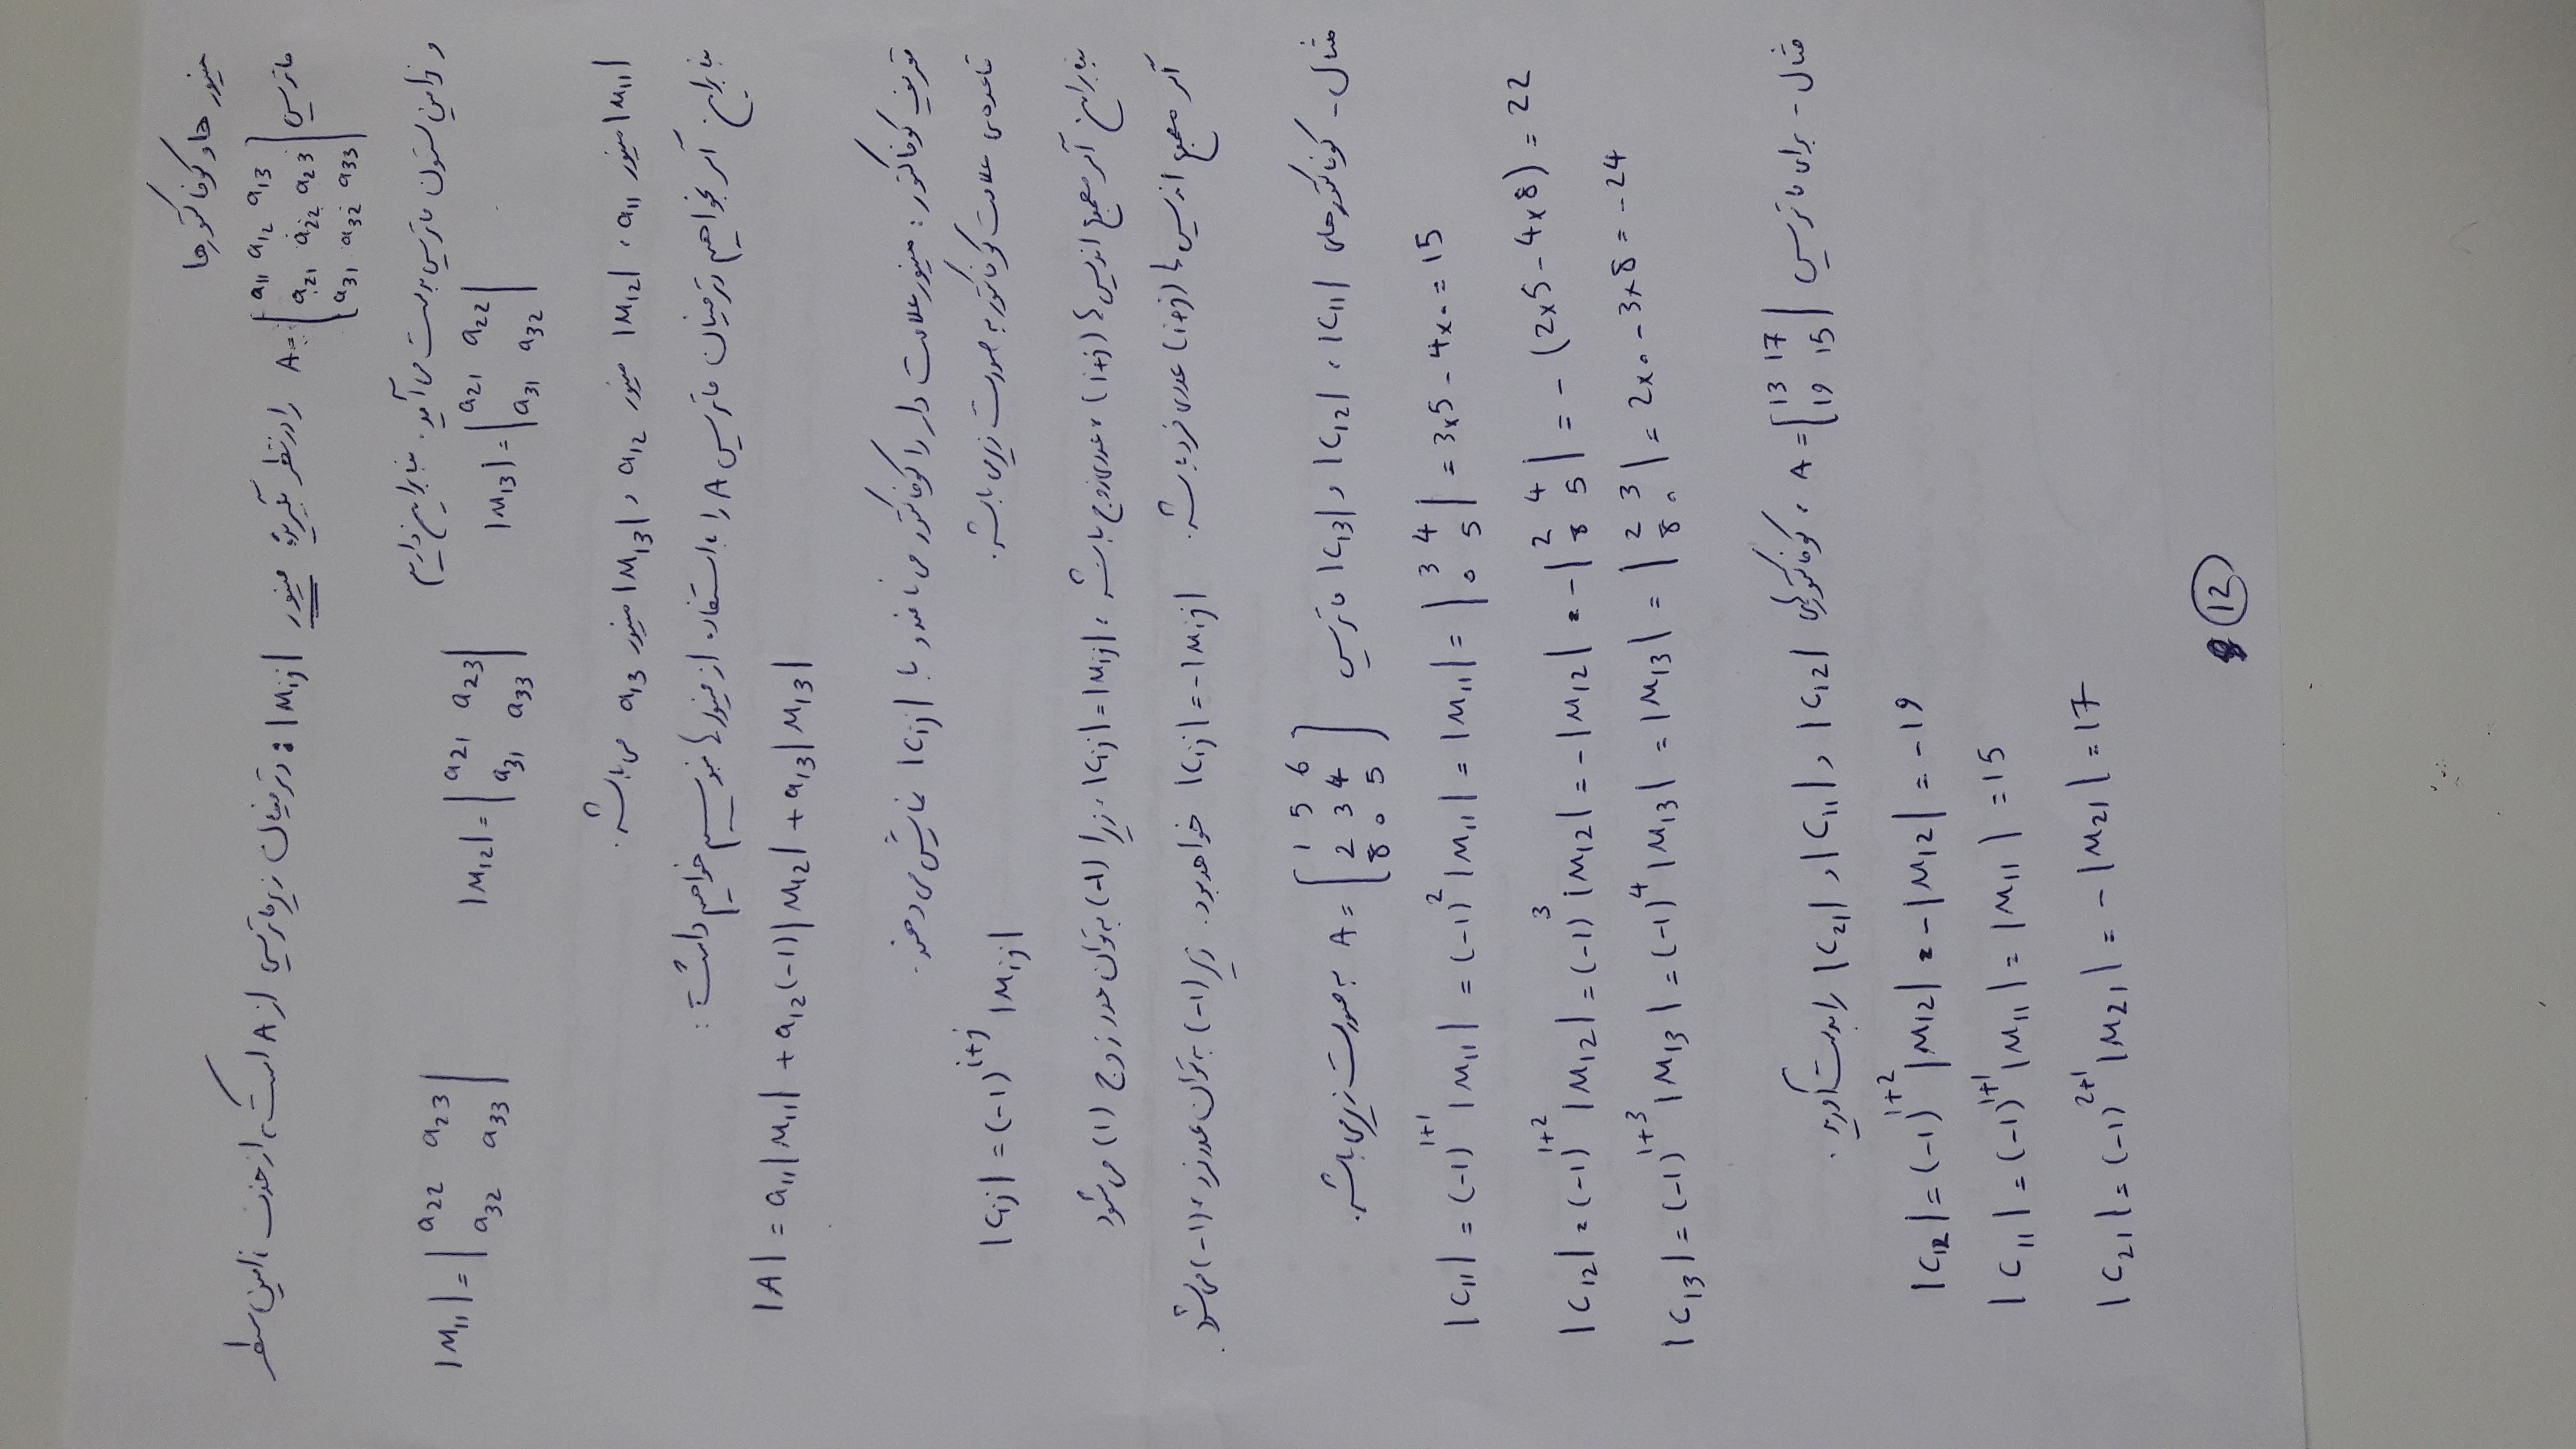 مینور ها و کوفاکتورها
ماتریس A = [a11 a12 a13 را در نظر بگیرید؛ مینور |Mij| : دترمینان زیر ماتریسی از A است، از حذف iامین سطر
a21 a22 a23
a31 a32 a33]
و jامین ستون ماتریس بدست می آید. بنابراین داریم
|M13| = |a21 a22 |M12| = |a21 a23 |M11| = |a22 a23
a31 a32| a31 a33| a32 a33|
|M11| مینور a11 ، |M12| مینور a12 و |M13| مینور a13 می باشد.
بنابراین اگر بخواهیم دترمینان ماتریس A را با استفاده از مینورها بنویسیم خواهیم داشت:
|A| = a11|M11| + a12(-1)|M12| + a13|M13|
تعریف کوفاکتور: مینور علامت دار را کوفاکتور می نامند و با |Cij| نمایش می دهند.
قاعده ی علامت کوفاکتور به صورت زیر می باشد. |Cij| = (-1)^i+j |Mij|
بنابراین اگر مجموع اندیس ها (i+j) عددی زوج باشد، |Cij| = |Mij| ، زیرا (-1) به توان عدد زوج (1) می شود
اگر مجموع اندیس ها (i+j) عددی فرد باشد. |Cij| = -|Mij| خواهد بود. زیرا (-1) به توان عدد فرد، (-1) می شود.
مثال - کوفاکتورهای |C11| ، |C12| و |C13| ماتریس A = [1 5 6 به صورت زیر می باشد.
2 3 4
8 0 5]
|C11| = (-1)^1+1 |M11| = (-1)^2 |M11| = |M11| = |3 4
0 5| = 3x5 - 4x0 = 15
|C12| = (-1)^1+2 |M12| = (-1)^3 |M12| = -|M12| = -|2 4
8 5| = -(2x5 - 4x8) = 22
|C13| = (-1)^1+3 |M13| = (-1)^4 |M13| = |M13| = |2 3
8 0| = 2x0 - 3x8 = -24
مثال - برای ماتریس A = [13 17 ، کوفاکتورهای |C12| و |C11| و |C21| را بدست آورید.
19 15]
|C12| = (-1)^1+2 |M12| = -|M12| = -19
|C11| = (-1)^1+1 |M11| = |M11| = 15
|C21| = (-1)^2+1 |M21| = -|M21| = 17
12